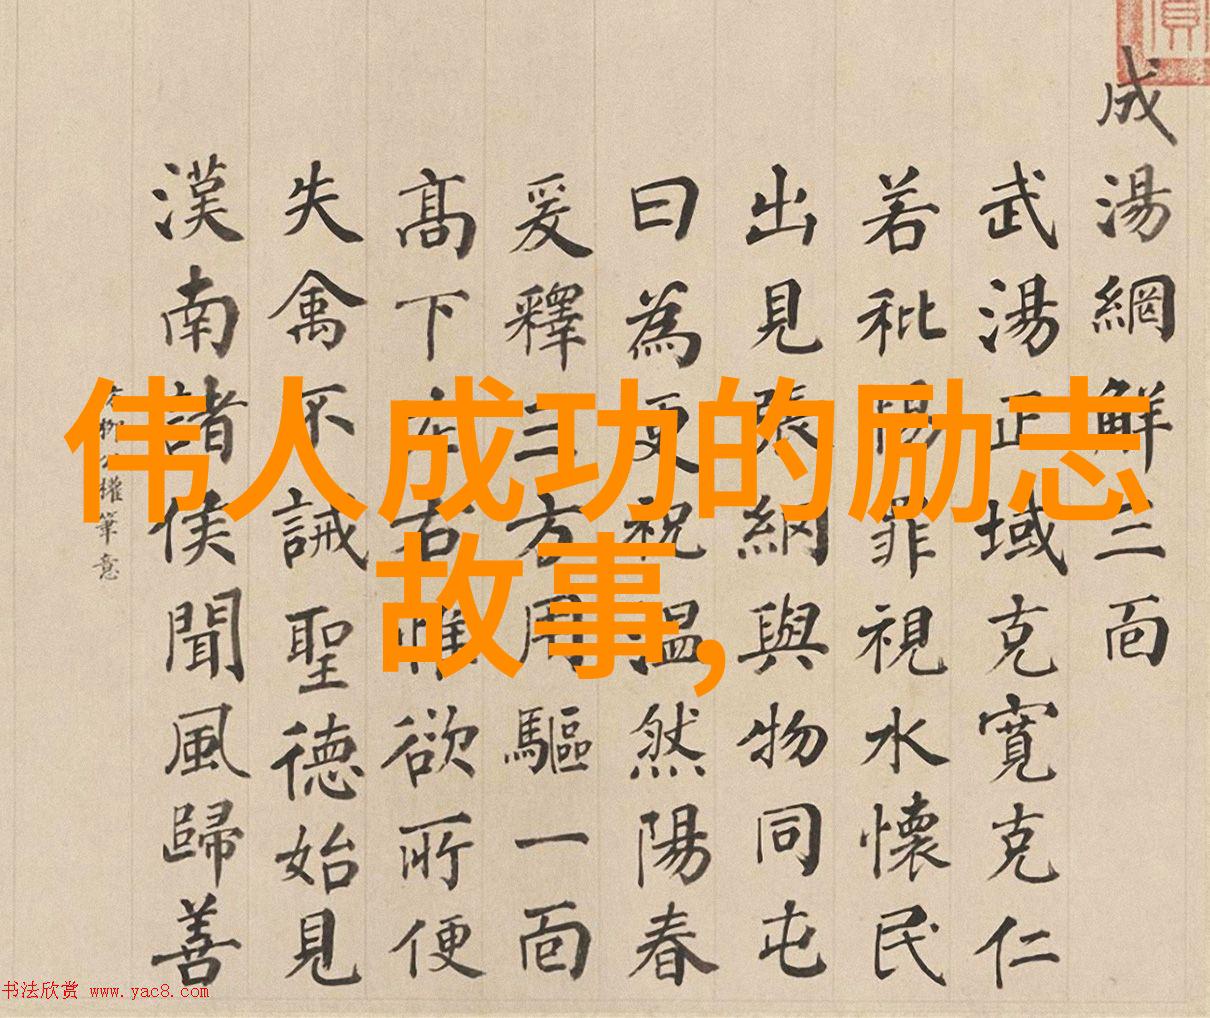 伟人成功的励志
故事,
成湯網觧三面
武湯正域克寬克仁
若秕惕罪視水懷民
出見張網與物同屯
曰為更祝温然陽春
爰釋三方用驅一面
髙下左右惟欲所便
失禽不誡聖德始見
漢南諸侯聞風歸善
柳公權筆意
书法欣赏 www.yac8.com